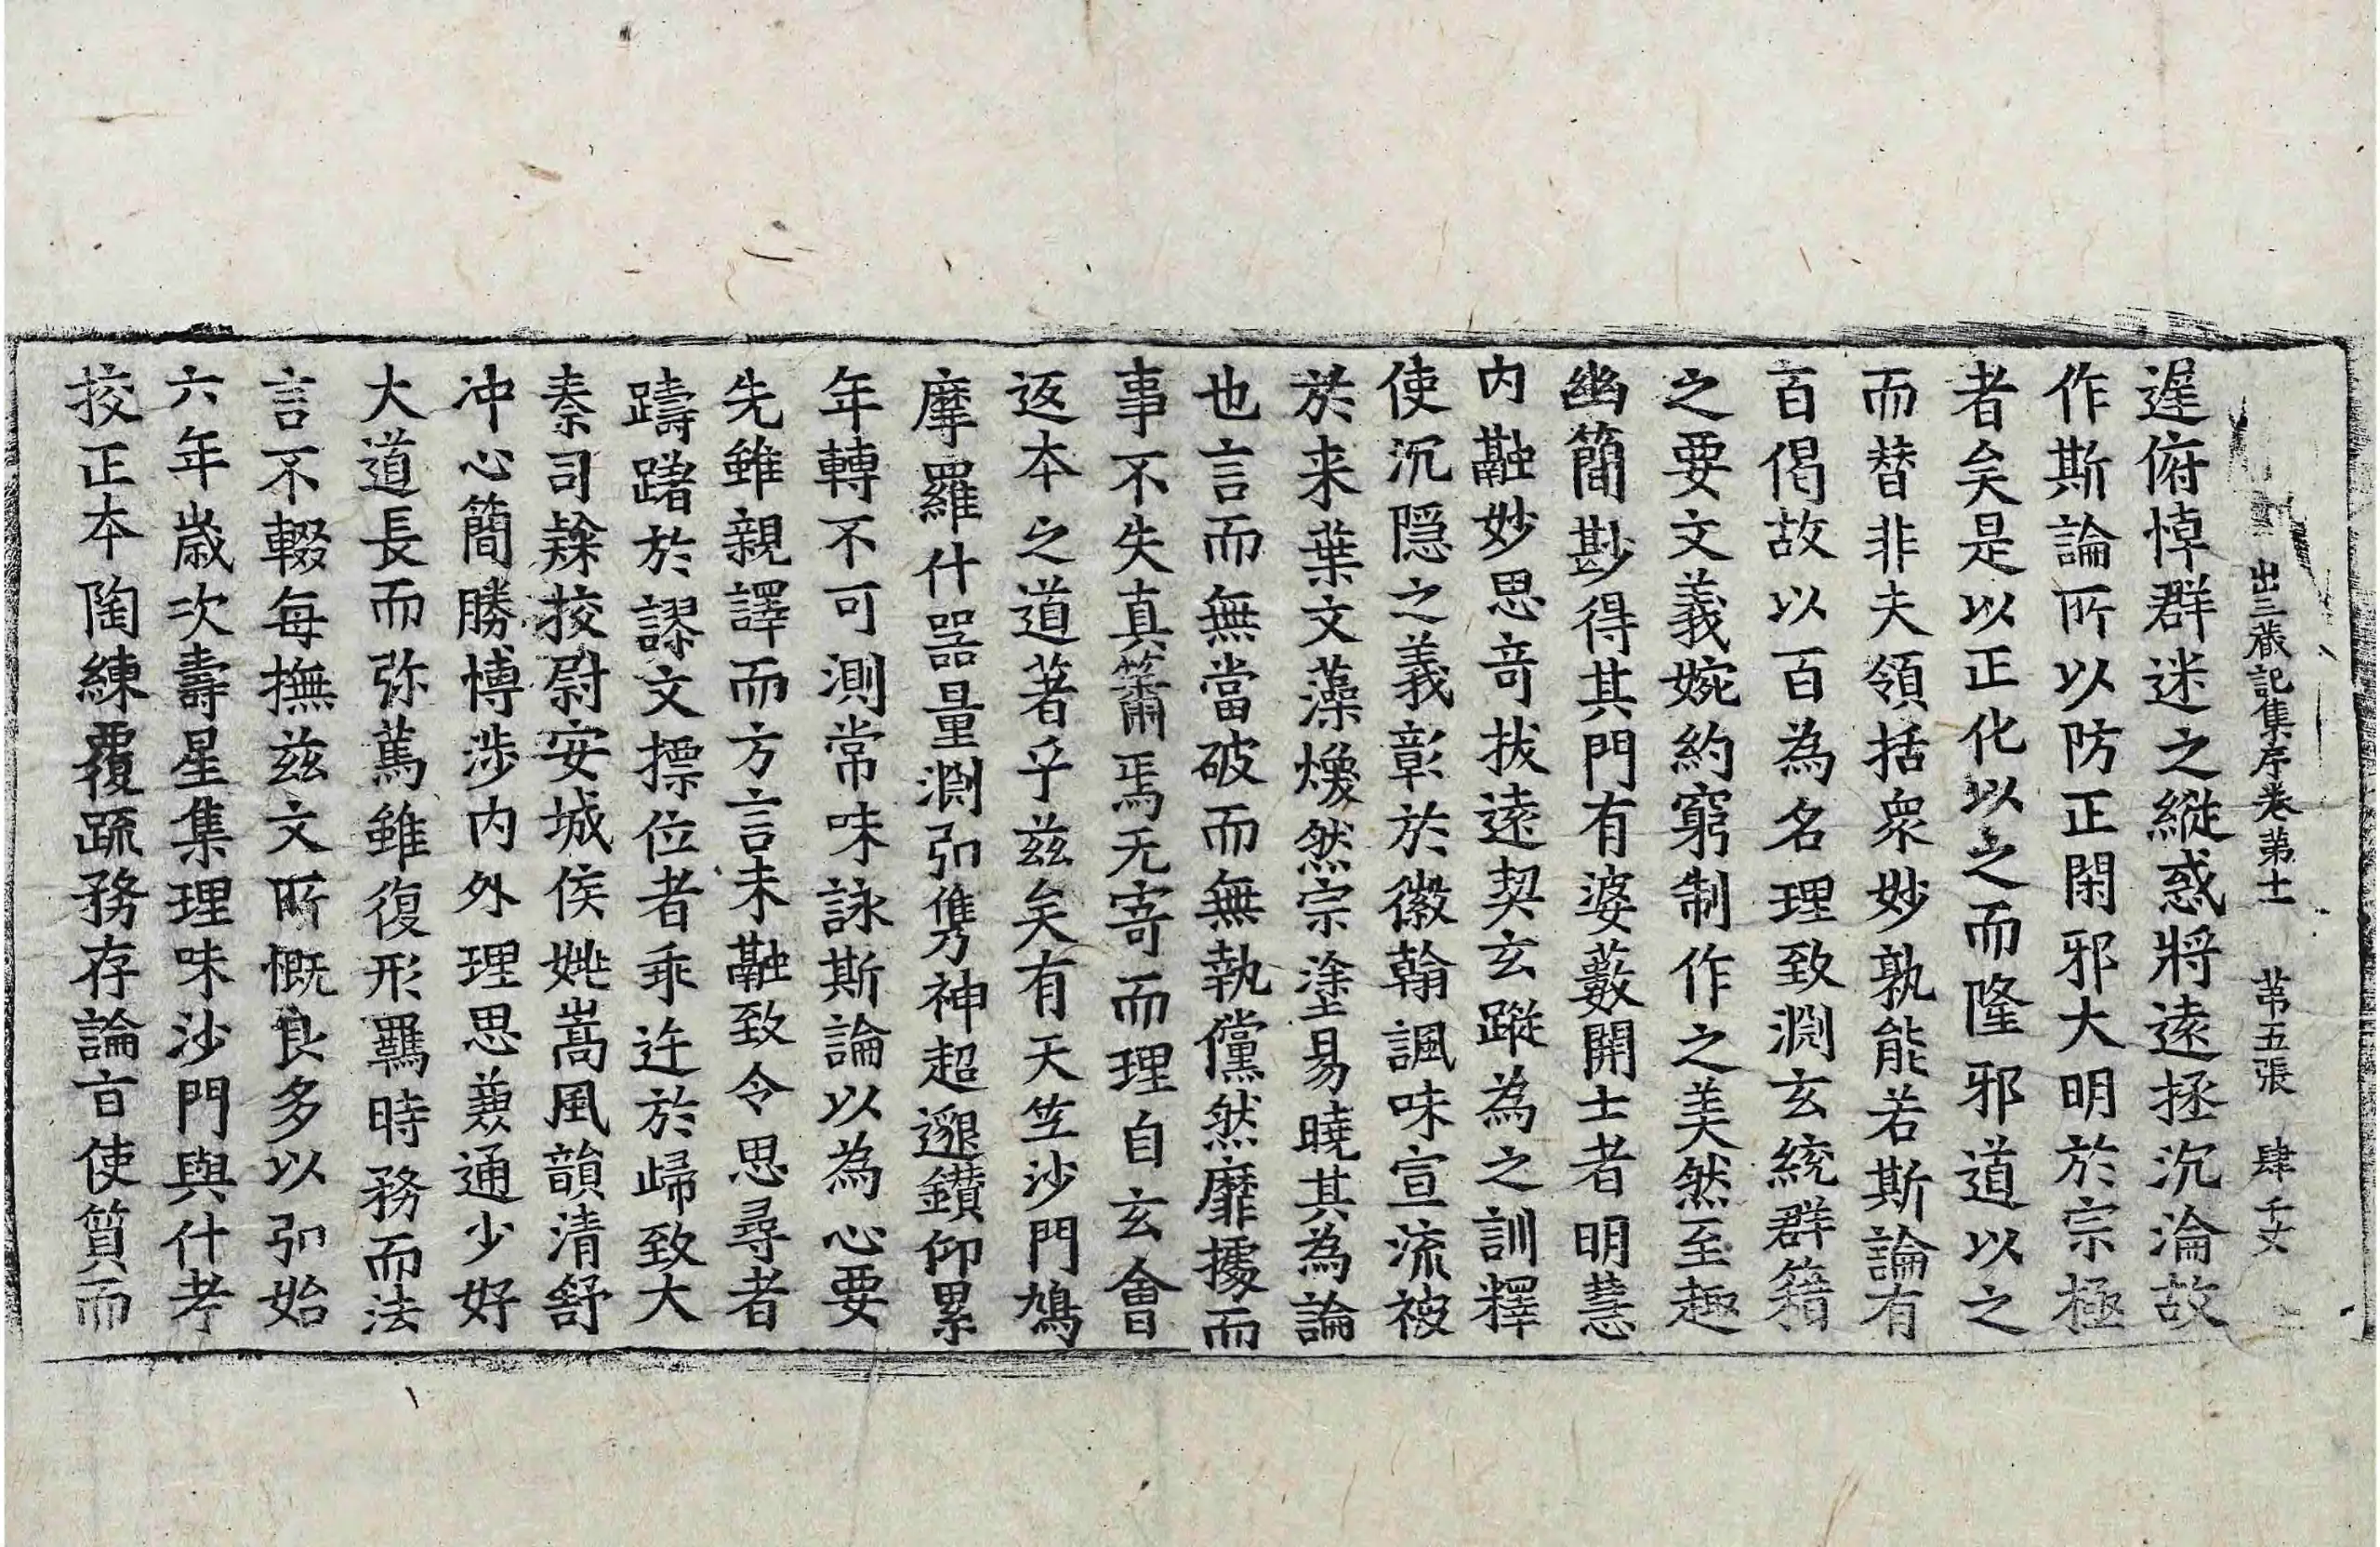 出三藏記集序卷第十一 第五張 肆千丈
遲俯悼群迷之縱惑將遠拯沉淪故
作斯論所以防正閑邪大明於宗極
者矣是以正化以之而隆邪道以之
而替非夫領括衆妙孰能若斯論有
百偈故以百為名理致淵玄統群籍
之要文義婉約窮制作之美然至趣
幽簡尟得其門有婆藪開士者明慧
內融妙思奇拔遠契玄蹤為之訓釋
使沉隱之義彰於徽翰諷味宣流被
於来葉文藻煥然宗塗易曉其為論
也言而無當破而無執儻然靡據而
事不失真蕭焉无寄而理自玄會
返本之道著乎兹矣有天竺沙門鳩
摩羅什器量淵弘雋神超邈鑽仰累
年轉不可測常味詠斯論以為心要
先雖親譯而方言未融致令思尋者
躊躇於謬文摽位者乖迕於歸致大
秦司隸挍尉安城侯姚嵩風韻清舒
冲心簡勝博涉內外理思蕟通少好
大道長而弥篤雖復形羈時務而法
言不輟每撫兹文所慨良多以弘始
六年歲次壽星集理味沙門與什考
挍正本陶練覆疏務存論旨使質而